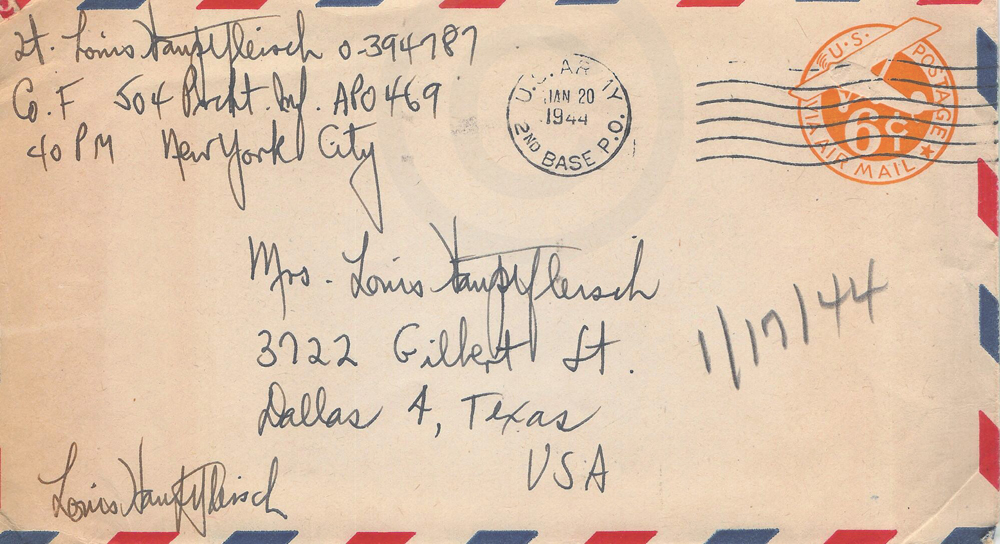 Lt. Louis Hauptfleisch O-394787
Co. F 504 Prcht. Inf. APO 469
℅ PM New York City
U.S. ARMY
JAN 20
1944
2ND BASE P.O.
U.S. POSTAGE
6¢
VIA AIR MAIL
Mrs. Louis Hauptfleisch
3722 Gilbert St.
Dallas 4, Texas
USA
1/17/44
Louis Hauptfleisch